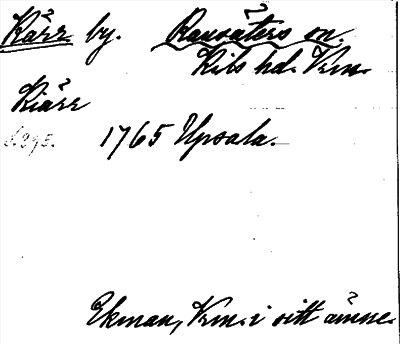 Kärr by. Ransäters sn.
Kils hd. Vrm.
Kiärr
S. 295. 1765 Upsala.
Ekman, Vrm. i sitt ämne.